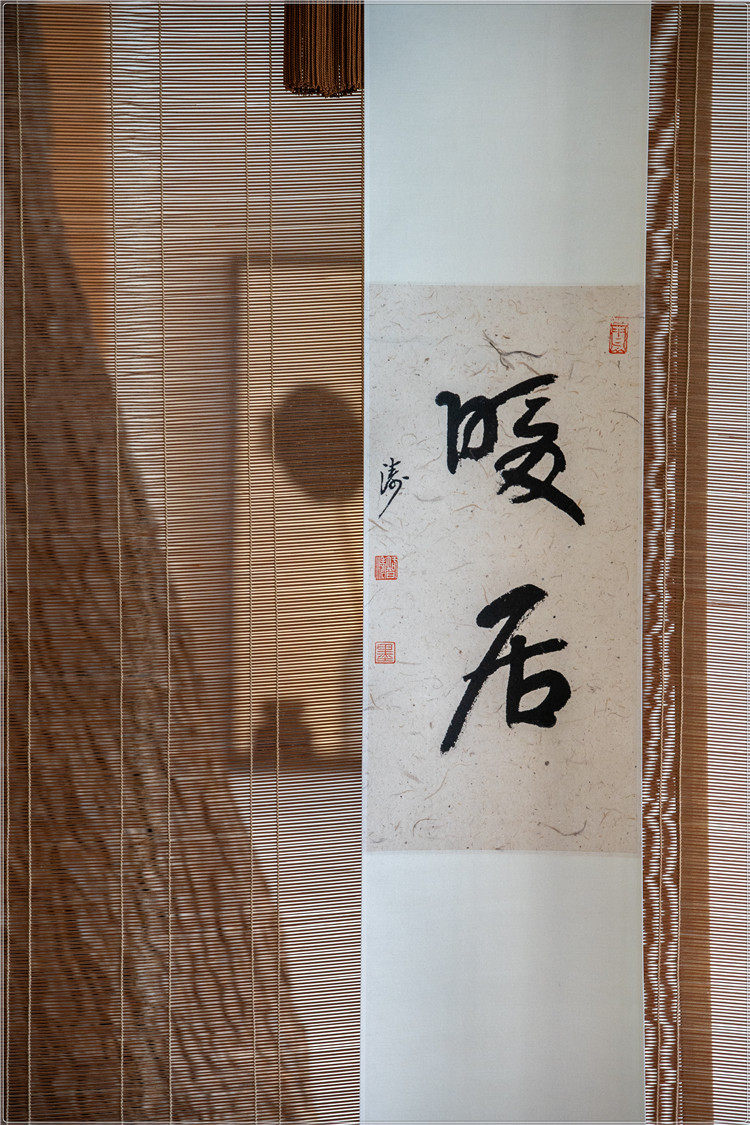 暖居
涛